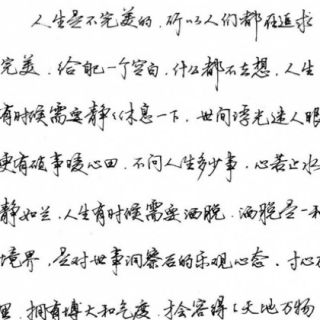 人生是不完美的，所以人们都在追求
完美，给自己一个空白，什么都不去想，人生
有时候需要静静休息一下，世间浮光迷人眼
更有琐事暖心田，不问人生多少事，心若止水
静如兰，人生有时候需要洒脱，洒脱是一种
境界，是对世事洞察后的乐观心态，寸心
里，拥有博大和气度，才会容得了天地万物